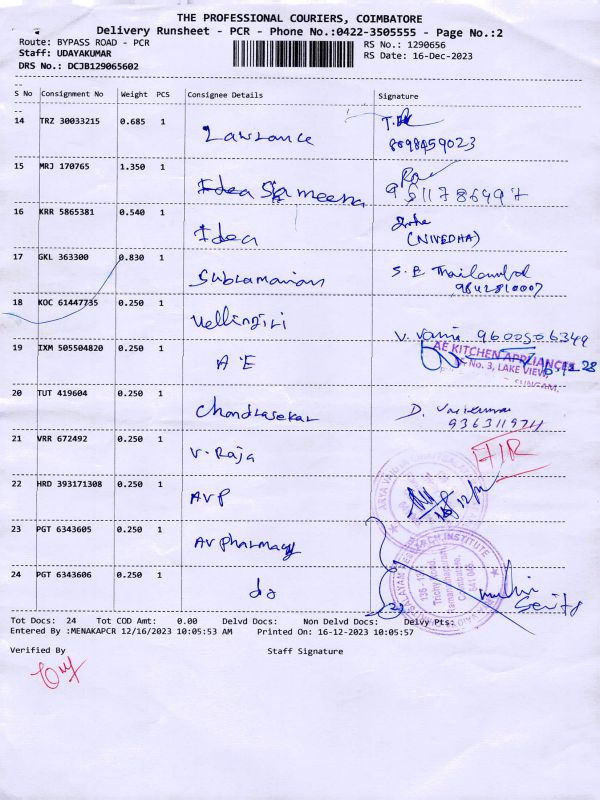 THE PROFESSIONAL COURIERS, COIMBATORE
Delivery Runsheet - PCR - Phone No.:0422-3505555 - Page No.:2
Route: BYPASS ROAD - PCR
RS No.: 1290656
Staff: UDAYAKUMAR
RS Date: 16-Dec-2023
DRS No.: DCJB129065602
S No Consignment No Weight PCS Consignee Details Signature
14 TRZ 30033215 0.685 1 Lawrance
8098459023
15 MRJ 170765 1.350 1 Idea Sameena
16 KRR 5865381 0.540 1 Idea
(NIVEDHA)
17 GKL 363300 0.830 1 Subramanian
9842810007
18 KOC 61447735 0.250 1 Vellingiri
V. Vani 9600506349
19 IXM 505504820 0.250 1 A E
AE KITCHEN APPLIANCES
No. 3, LAKE VIEW
20 TUT 419604 0.250 1 Chandrasekar
D.
936311974
21 VRR 672492 0.250 1 V. Raja
22 HRD 393171308 0.250 1 AVP
23 PGT 6343605 0.250 1 AV pharmacy
RESEARCH INSTITUTE
24 PGT 6343606 0.250 1 do
Tot Docs: 24 Tot COD Amt: 0.00 Delvd Docs: Non Delvd Docs: Delvy Pts:
Entered By :MENAKAPCR 12/16/2023 10:05:53 AM Printed On: 16-12-2023 10:05:57
Verified By Staff Signature